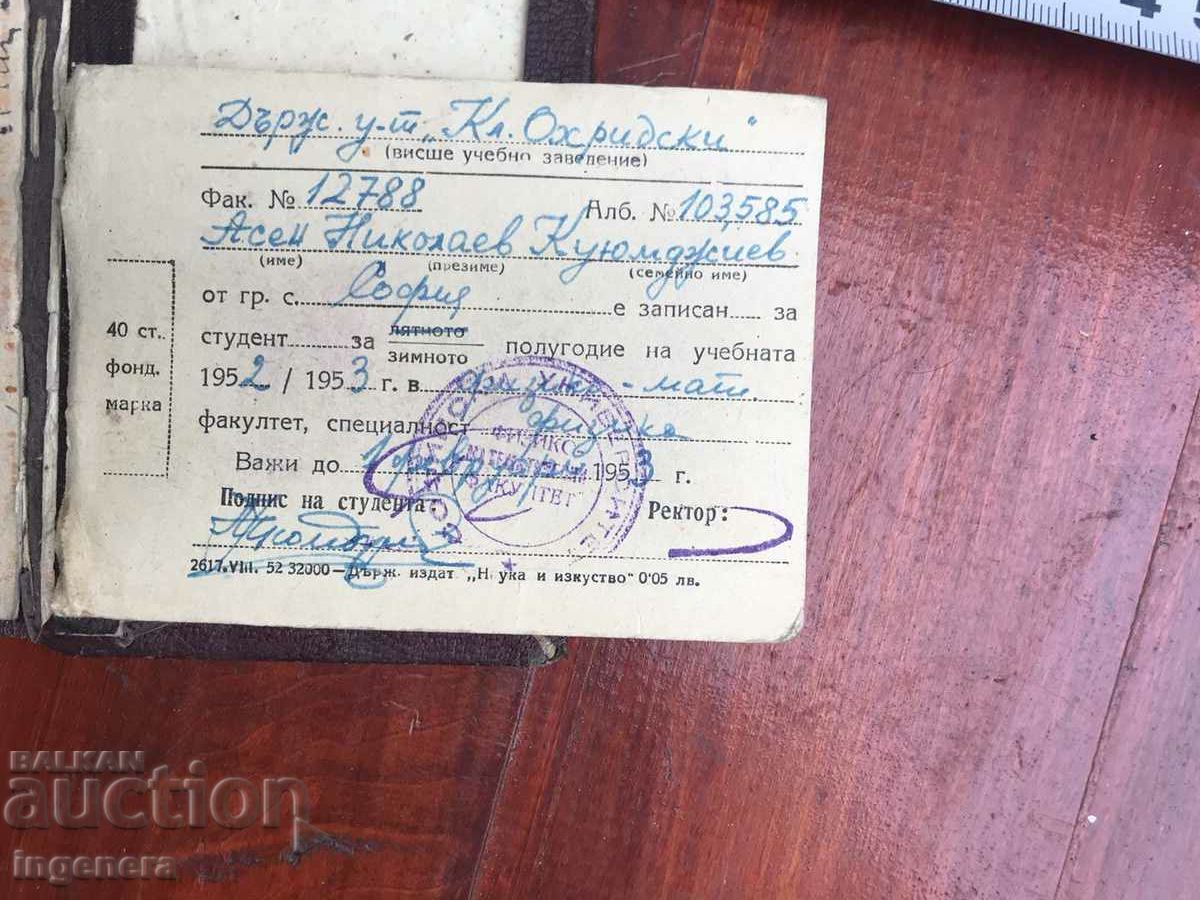 Държ. у-т „Кл. Охридски"
(висше учебно заведение)
Фак. № 12788 Алб. № 103,585
Асен Николаев Куюмджиев
(име) (презиме) (семейно име)
от гр. с. София е записан за
40 ст.
фонд.
марка
студент за лятното
зимното полугодие на учебната
1952 / 1953 г. в физико-мат.
факултет, специалност физика
Важи до 1953 г.
Подпис на студента: Ректор:
ФИЗИКО
ФАКУЛТЕТ
2617.VIII. 52 32000 — Държ. издат „Наука и изкуство" 0·05 лв.
BALKAN
auction
ingenera
4